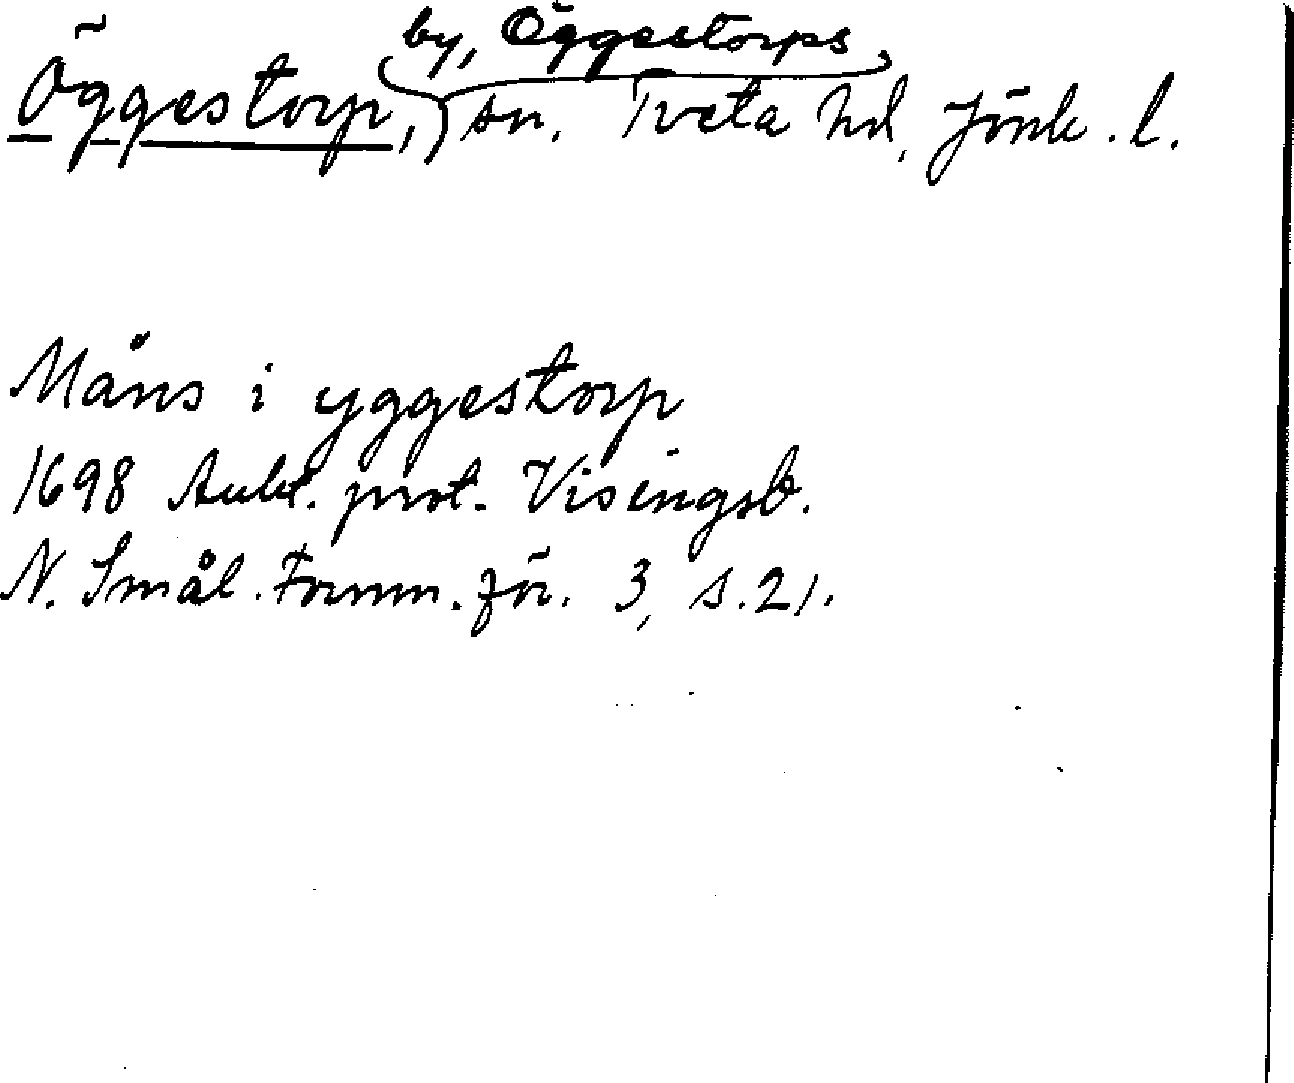 by, Öggestorps
Öggestorp, sn. Tveta hd, Jönk. l.
Måns i yggestorp
1698 Aukt. prot. Visingsb.
N. Smål. Fornm. för. 3, s. 21.